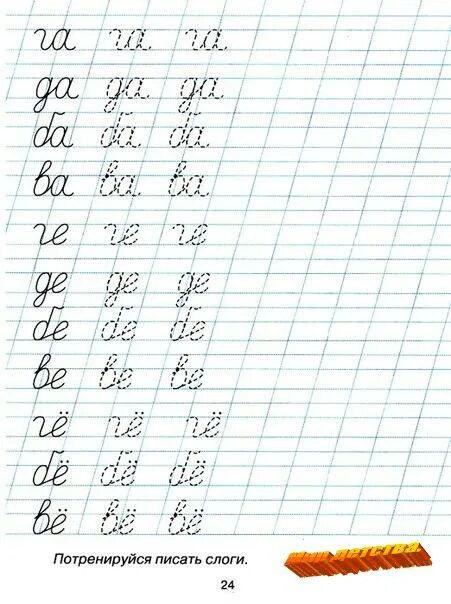 га га га
да да да
ба ба ба
ва ва ва
ге ге ге
де де де
бе бе бе
ве ве ве
гё гё гё
бё бё бё
вё вё вё
Потренируйся писать слоги.
Мир детства.
24